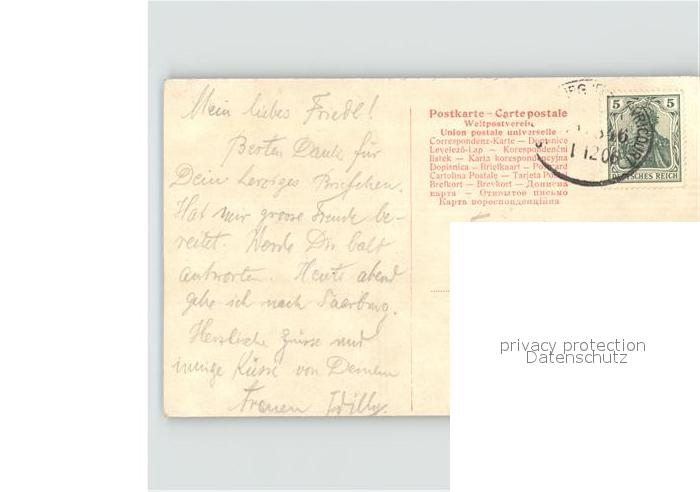 Mein liebes Friedl!
Besten Dank für
Dein herziges Briefchen.
Hat mir grosse Freude be-
reitet. Werde Dir balt
antworten. Heute abend
gehe ich nach Saarburg.
Herzliche Grüsse und
innige Küsse von Deinem
treuen Willy.
Postkarte – Carte postale
Weltpostverein
Union postale universelle
Correspondenz-Karte – Dopisnice
Levelező-Lap – Korespondenční
lístek – Karta korespondencyjna
Dopisnica – Briefkaart – Postcard
Cartolina Postale – Tarjeta Postal
Brefkort – Brevkort – Дописна
карта – Открытое письмо
Карта кореспонденційна
5 5
DEUTSCHES REICH
12 06
privacy protection
Datenschutz